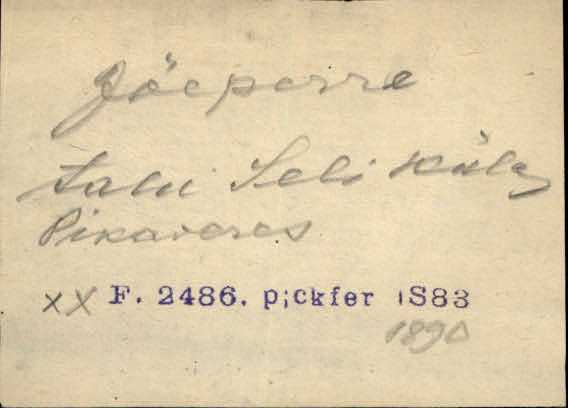 Jõeperre
talu Seli küla
Pikaveres
xx F. 2486. p;ckfer 1S83
1890